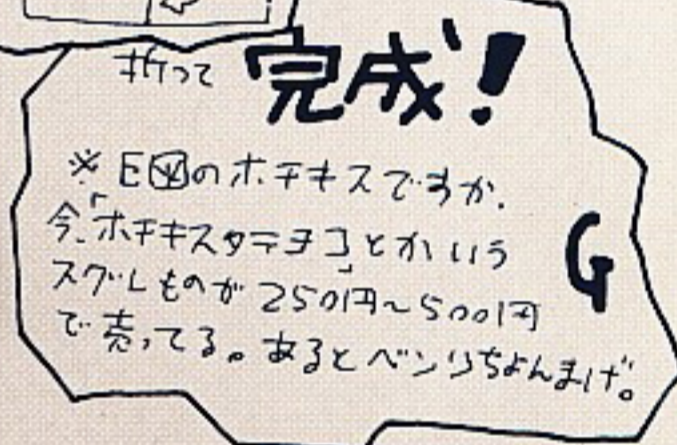 折って 完成!
※E図のホチキスですが、
今、「ホチキスタテヨコ」とかいう
スグレものが250円~500円
で売ってる。あるとベンリちょんまげ。
G